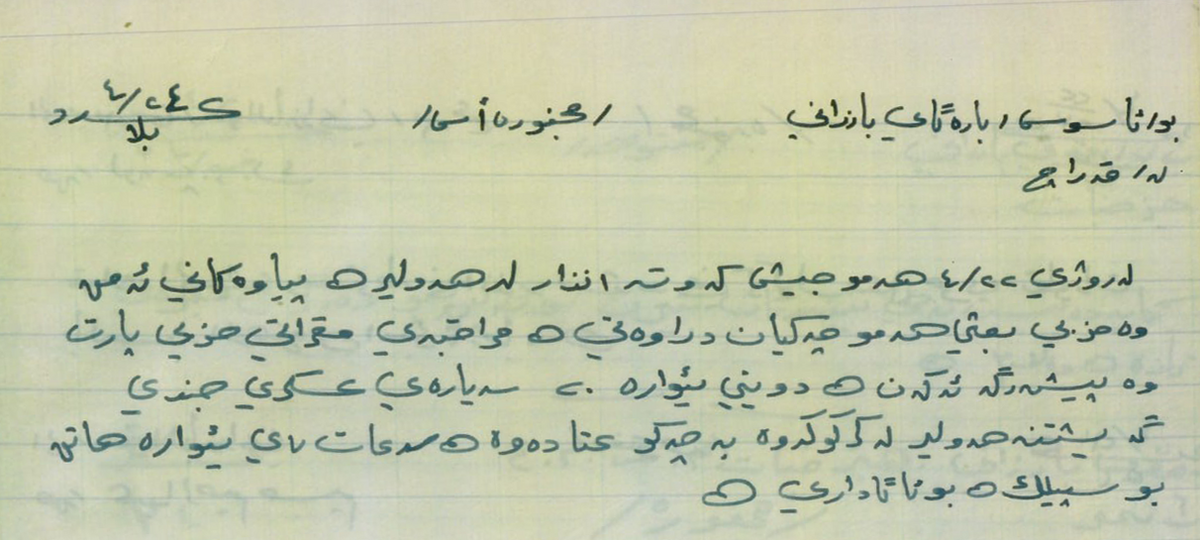 بو/ ئاسوس / بارەگای بارزانی / عجنورە أسی / ٢٤/٤
لە/ قەراج
لەروژی ٤/٢٢ هەموجیش کەوتە انذار لەهەولیر ه پیاوەکانی ئەمن
وە حزبی بعثی هەمو چەکیان دراوەتی ه مراقبەی مقراتی حزبی پارت
وە پیشمرگە ئەکەن ه دوینی ئیوارە ٢٠ سەیارەی عسکری جندی
گەیشتنە هەولیر لە کرکوکەوە بە چەکو عتادەوە ه سەعات ٧ی ئیوارە هاتن
بو سپیلك ه بو ئاگاداری ه